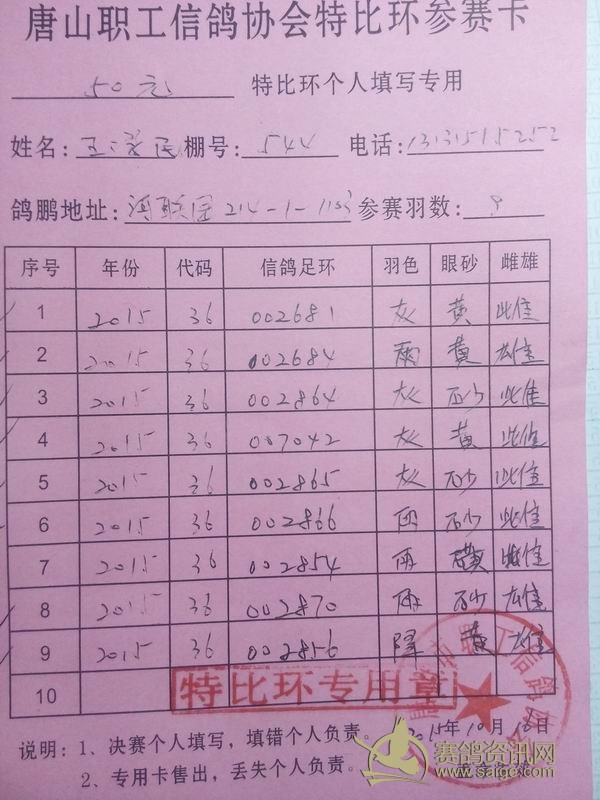 唐山职工信鸽协会特比环参赛卡
50元 特比环个人填写专用
姓名: 民 棚号: 544 电话: 13131515252
鸽鹏地址: 214-1-1 参赛羽数:
序号 年份 代码 信鸽足环 羽色 眼砂 雌雄
1 2015 36 002681 灰 黄 雌
2 2015 36 002684 雨 黄 雄
3 2015 36 002864 灰 砂 雌
4 2015 36 007042 灰 黄 雌
5 2015 36 002865 灰 砂 雌
6 2015 36 002866 雨 砂 雌
7 2015 36 002854 雨 黄 雌
8 2015 36 002870 雨 砂 雄
9 2015 36 002856 绛 黄 雄
10 特比环专用章
职工信鸽
2015年10月 日
说明: 1、决赛个人填写，填错个人负责。
2、专用卡售出，丢失个人负责。
赛鸽资讯网
www.saige.com